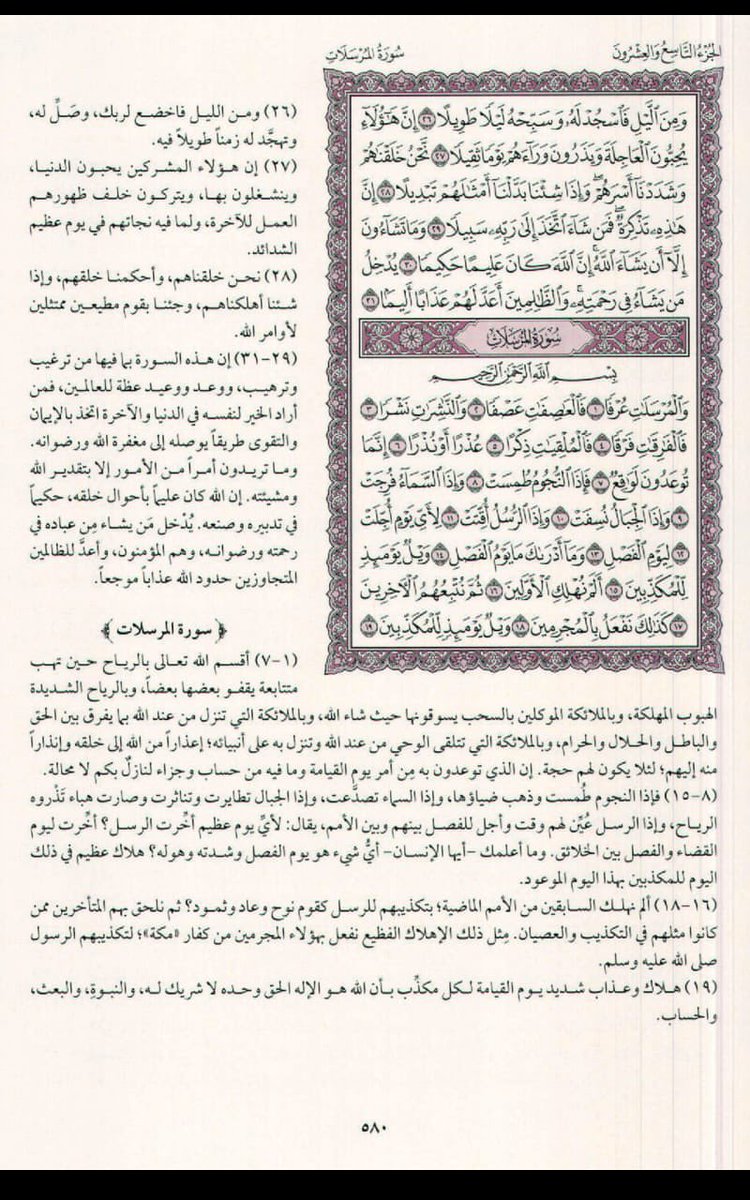 الجزء التاسع والعشرون
سورة المرسلات
وَمِنَ ٱلَّيۡلِ فَٱسۡجُدۡ لَهُۥ وَسَبِّحۡهُ لَيۡلٗا طَوِيلًا ٢٦ إِنَّ هَٰٓؤُلَآءِ
يُحِبُّونَ ٱلۡعَاجِلَةَ وَيَذَرُونَ وَرَآءَهُمۡ يَوۡمٗا ثَقِيلٗا ٢٧ نَّحۡنُ خَلَقۡنَٰهُمۡ
وَشَدَدۡنَآ أَسۡرَهُمۡۖ وَإِذَا شِئۡنَا بَدَّلۡنَآ أَمۡثَٰلَهُمۡ تَبۡدِيلًا ٢٨ إِنَّ
هَٰذِهِۦ تَذۡكِرَةٞۖ فَمَن شَآءَ ٱتَّخَذَ إِلَىٰ رَبِّهِۦ سَبِيلٗا ٢٩ وَمَا تَشَآءُونَ
إِلَّآ أَن يَشَآءَ ٱللَّهُۚ إِنَّ ٱللَّهَ كَانَ عَلِيمًا حَكِيمٗا ٣٠ يُدۡخِلُ
مَن يَشَآءُ فِي رَحۡمَتِهِۦۚ وَٱلظَّٰلِمِينَ أَعَدَّ لَهُمۡ عَذَابًا أَلِيمَۢا ٣١
سُورَةُ المُرْسَلَاتِ
بِسۡمِ ٱللَّهِ ٱلرَّحۡمَٰنِ ٱلرَّحِيمِ
وَٱلۡمُرۡسَلَٰتِ عُرۡفٗا ١ فَٱلۡعَٰصِفَٰتِ عَصۡفٗا ٢ وَٱلنَّٰشِرَٰتِ نَشۡرٗا ٣
فَٱلۡفَٰرِقَٰتِ فَرۡقٗا ٤ فَٱلۡمُلۡقِيَٰتِ ذِكۡرًا ٥ عُذۡرًا أَوۡ نُذۡرًا ٦ إِنَّمَا
تُوعَدُونَ لَوَٰقِعٞ ٧ فَإِذَا ٱلنُّجُومُ طُمِسَتۡ ٨ وَإِذَا ٱلسَّمَآءُ فُرِجَتۡ
٩ وَإِذَا ٱلۡجِبَالُ نُسِفَتۡ ١٠ وَإِذَا ٱلرُّسُلُ أُقِّتَتۡ ١١ لِأَيِّ يَوۡمٍ أُجِّلَتۡ
١٢ لِيَوۡمِ ٱلۡفَصۡلِ ١٣ وَمَآ أَدۡرَىٰكَ مَا يَوۡمُ ٱلۡفَصۡلِ ١٤ وَيۡلٞ يَوۡمَئِذٖ
لِّلۡمُكَذِّبِينَ ١٥ أَلَمۡ نُهۡلِكِ ٱلۡأَوَّلِينَ ١٦ ثُمَّ نُتۡبِعُهُمُ ٱلۡأٓخِرِينَ
١٧ كَذَٰلِكَ نَفۡعَلُ بِٱلۡمُجۡرِمِينَ ١٨ وَيۡلٞ يَوۡمَئِذٖ لِّلۡمُكَذِّبِينَ ١٩
(٢٦) ومـن الليـل فاخضـع لربـك، وصَلِّ له،
وتهجَّد له زمناً طويلاً فيه.
(٢٧) إن هـؤلاء المشـركين يحبـون الدنيـا،
وينشـغلون بهـا، ويتركـون خلـف ظهورهـم
العمـل للآخرة، ولما فيه نجاتهم في يوم عظيم
الشدائد.
(٢٨) نحـن خلقناهم، وأحكمنـا خلقهم، وإذا
شـئنا أهلكناهـم، وجئنـا بقوم مطيعـين ممتثلين
لأوامر الله.
(٢٩-٣١) إن هـذه السـورة بما فيها من ترغيب
وترهيـب، ووعـد ووعيـد عظة للعالمـين، فمن
أراد الخير لنفسـه في الدنيا والآخرة اتخذ بالإيمان
والتقوى طريقاً يوصله إلى مغفرة الله ورضوانه.
ومـا تريـدون أمـراً مـن الأمـور إلا بتقديـر الله
ومشيئته. إن الله كان عليماً بأحوال خلقه، حكيماً
في تدبيره وصنعه. يُدْخل مَن يشـاء مِن عباده في
رحمته ورضوانـه، وهم المؤمنون، وأعدَّ للظالمين
المتجاوزين حدود الله عذاباً موجعاً.
﴿ سورة المرسلات ﴾
(١-٧) أقسـم الله تعـالى بالريـاح حـين تهـب
متتابعة يقفـو بعضها بعضاً، وبالرياح الشـديدة
الهبوب المهلكة، وبالملائكة الموكلين بالسحب يسوقونها حيث شاء الله، وبالملائكة التي تنزل من عند الله بما يفرق بين الحق
والباطـل والحـلال والحرام، وبالملائكة التي تتلقى الوحي من عند الله وتنزل به على أنبيائه؛ إعذاراً من الله إلى خلقه وإنذاراً
منه إليهم؛ لئلا يكون لهم حجة. إن الذي توعدون به مِن أمر يوم القيامة وما فيه من حساب وجزاء لنازلٌ بكم لا محالة.
(٨-١٥) فإذا النجوم طُمست وذهب ضياؤها، وإذا السماء تصدَّعت، وإذا الجبال تطايرت وتناثرت وصارت هباء تَذْروه
الريـاح، وإذا الرسـل عُيِّن لهم وقت وأجل للفصل بينهم وبين الأمم، يقال: لأيِّ يوم عظيم أخِّرت الرسل؟ أخِّرت ليوم
القضاء والفصل بين الخلائق. وما أعلمك -أيها الإنسان- أيُّ شيء هو يوم الفصل وشدته وهوله؟ هلاك عظيم في ذلك
اليوم للمكذبين بهذا اليوم الموعود.
(١٦-١٨) ألم نهلـك السـابقين من الأمم الماضية؛ بتكذيبهم للرسـل كقوم نوح وعاد وثمـود؟ ثم نلحق بهم المتأخرين ممن
كانوا مثلهم في التكذيب والعصيان. مِثل ذلك الإهلاك الفظيع نفعل بهؤلاء المجرمين من كفار «مكة»؛ لتكذيبهم الرسول
صلى الله عليه وسلم.
(١٩) هـلاك وعـذاب شـديد يـوم القيامة لـكل مكذِّب بـأن الله هـو الإله الحق وحـده لا شريك لـه، والنبـوةِ، والبعث،
والحساب.
٥٨٠